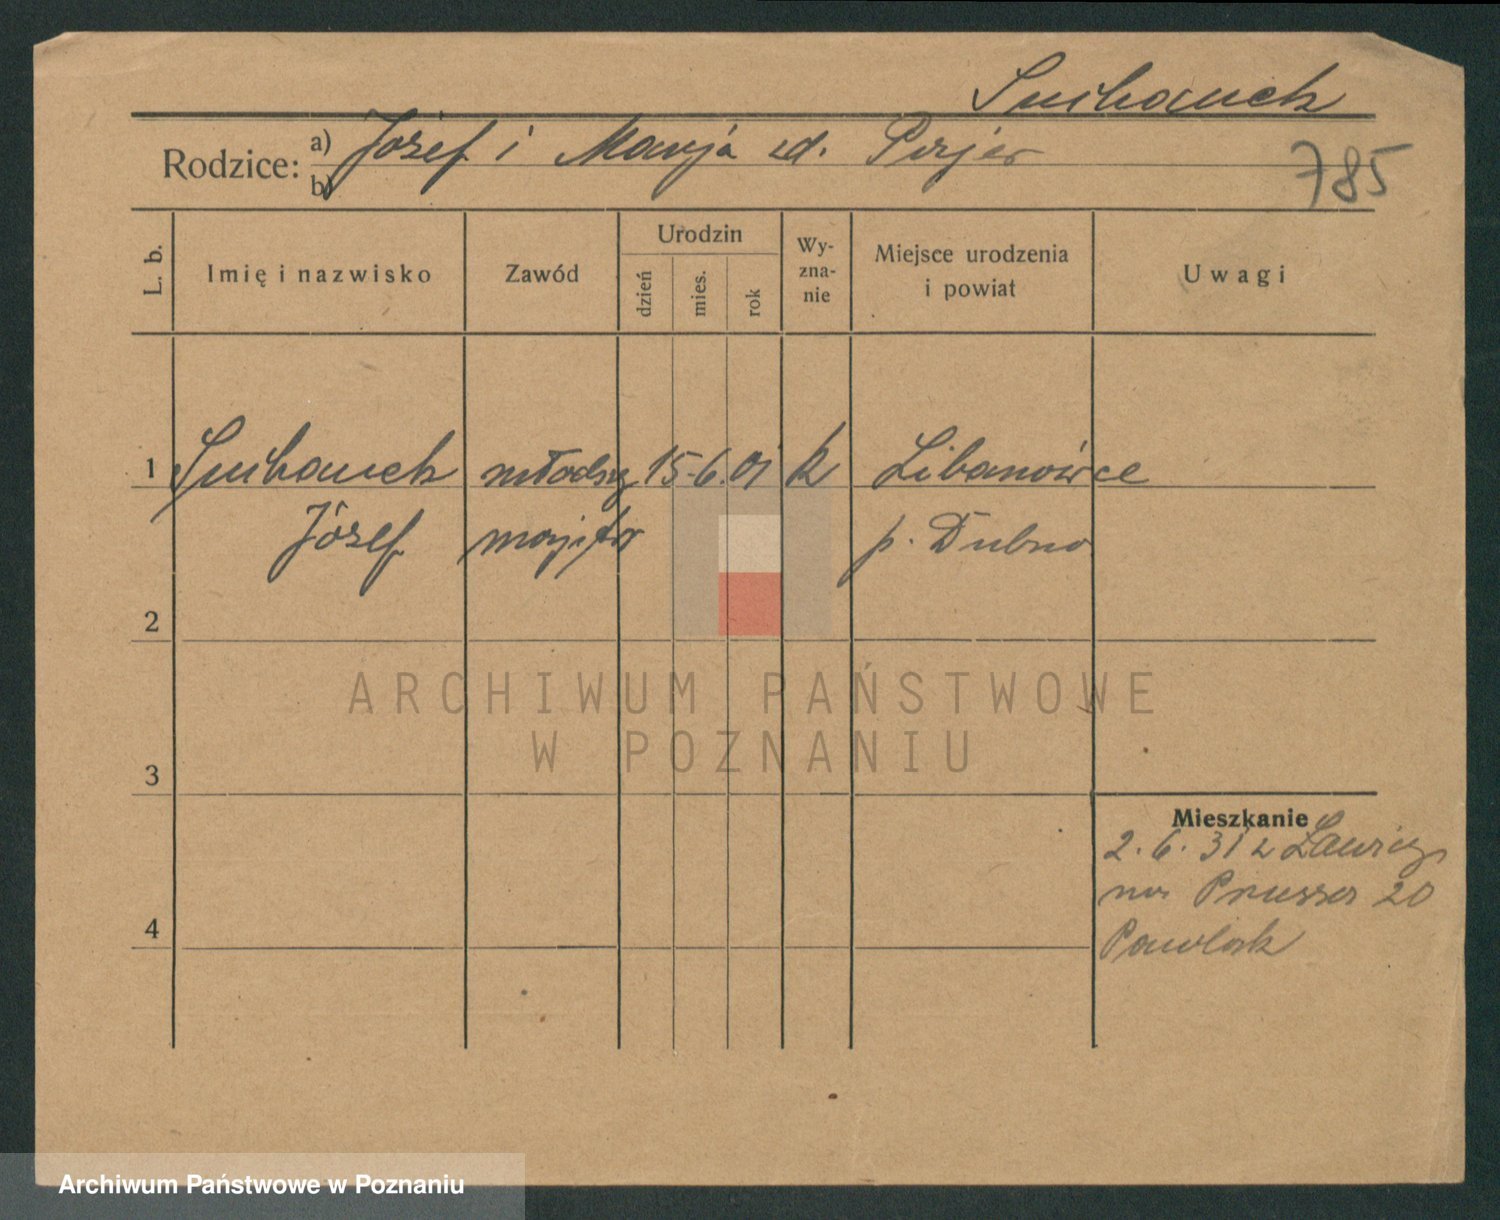 Suchanek
Rodzice: a) Józef i Marja zd. Perjer
b)
785
L. b. Imię i nazwisko Zawód Urodzin dzień mies. rok Wyznanie Miejsce urodzenia i powiat Uwagi
1 Suchanek młodszy 15-6.01 k Libanówce
Józef majster p. Dubno
2
ARCHIWUM PAŃSTWOWE
W POZNANIU
3
Mieszkanie
2. 6. 31 z Ławicy
na 20
4 Pawlak
Archiwum Państwowe w Poznaniu